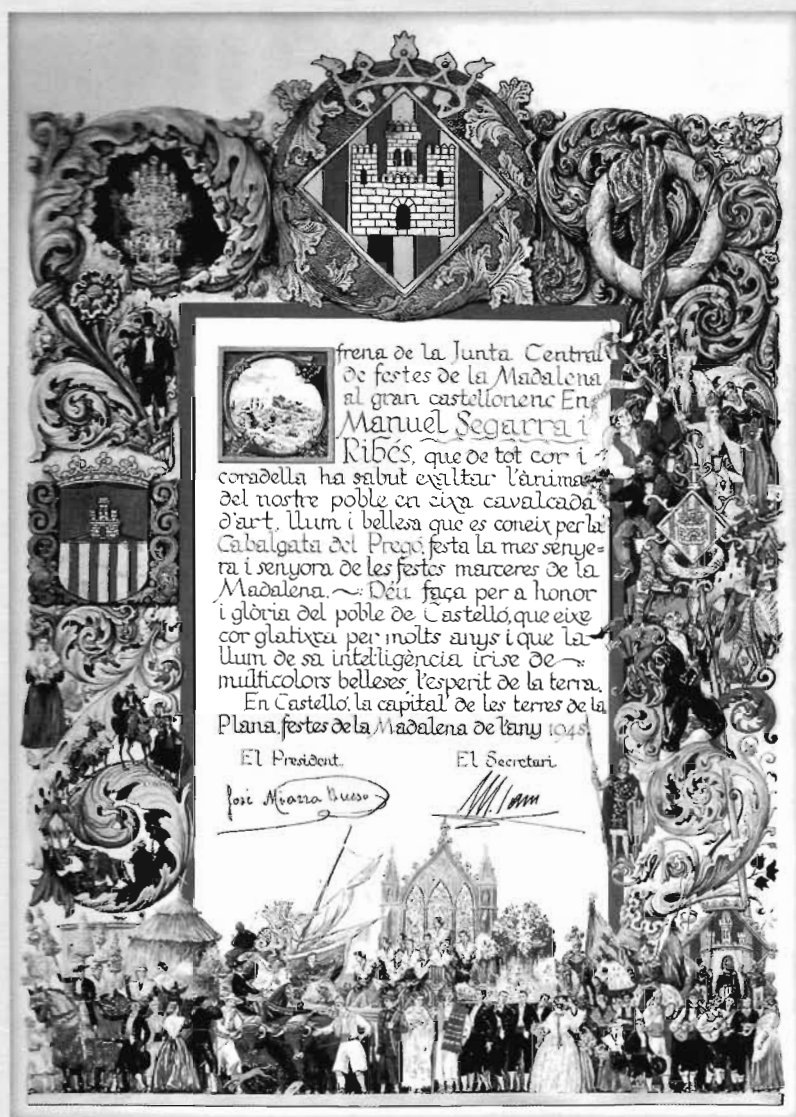 Ofrena de la Junta Central
de festes de la Madalena
al gran castellonenc En
Manuel Segarra i
Ribés, que de tot cor i
coradella ha sabut exaltar l'ànima
del nostre poble en eixa cavalcada
d'art, llum i bellesa que es coneix per la
Cabalgata del Pregó, festa la mes senye-
ra i senyora de les festes marceres de la
Madalena.~ Déu faça per a honor
i glòria del poble de Castelló, que eixe
cor glatixca per molts anys i que la
llum de sa intel·ligència irise de~
multicolors belleses, l'esperit de la terra.
En Castelló, la capital de les terres de la
Plana, festes de la Madalena de l'any 1948.
El President,
El Secretari
José